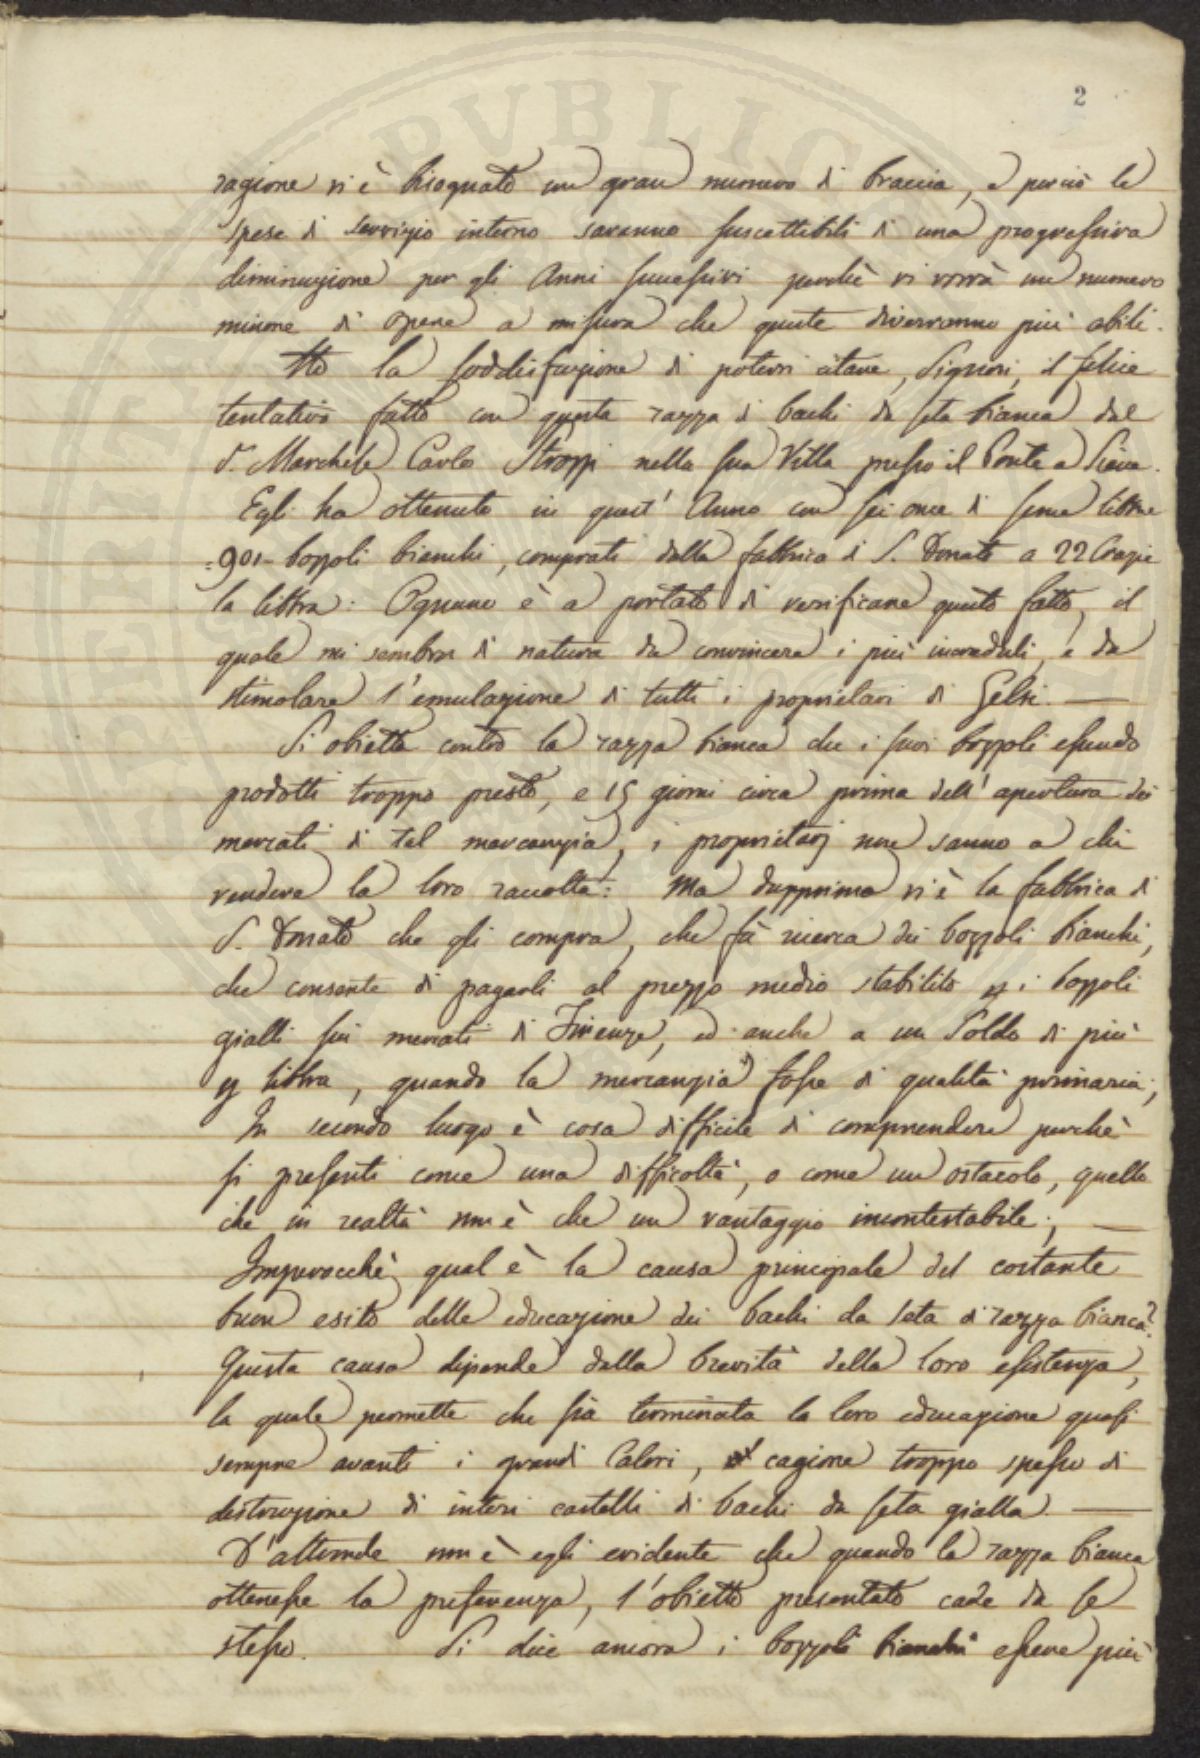 2
ragione vi è bisognato un gran numero di braccia, e perciò le
spese di servizio interno saranno suscettibili di una progressiva
diminuzione per gli Anni successivi perchè vi vorrà un numero
minore di opere a misura che queste diverranno più abili.
Ho la soddisfazione di potervi citare, Signori, il felice
tentativo fatto con questa razza di bachi da seta bianca dal
S.r Marchese Carlo Strozzi nella sua Villa presso il Ponte a Sieve.
Egli ha ottenuto in quest' Anno con sei once di seme libbre
=901= bozzoli bianchi, comprati dalla fabbrica di S. Donato a 22 Crazie
la libbra: Ognuno è a portato di verificare questo fatto, il
quale mi sembra di natura da convincere i più increduli, e da
stimolare l'emulazione di tutti i proprietari di Gelsi. —
Si obietta contro la razza bianca che i suoi bozzoli essendo
prodotti troppo presto, e 15 giorni circa prima dell' apertura dei
mercati di tal mercanzia, i proprietarj non sanno a chi
vendere la loro raccolta: Ma dapprima vi è la fabbrica di
S. Donato che gli compra, che fà ricerca dei bozzoli bianchi,
che consente di pagarli al prezzo medio stabilito p i bozzoli
gialli sui mercati di Firenze, ed anche a un Soldo di più
p libbra, quando la mercanzia fosse di qualità primaria;
In secondo luogo è cosa difficile di comprendere perchè
si presenti come una difficoltà, o come un ostacolo, quello
che in realtà non è che un vantaggio incontestabile; —
Imperocchè qual è la causa principale del costante
buon esito delle educazione dei bachi da seta di razza bianca?
Questa causa dipende dalla brevità della loro esistenza,
la quale permette che sia terminata la loro educazione quasi
sempre avanti i grandi Calori, cagione troppo spesso di
distruzione di interi castelli di bachi da seta gialla. —
D'altronde non è egli evidente che quando la razza bianca
ottenesse la preferenza, l'obietto presentato cade da se
stesso. Si dice ancora i bozzoli bianchi essere più